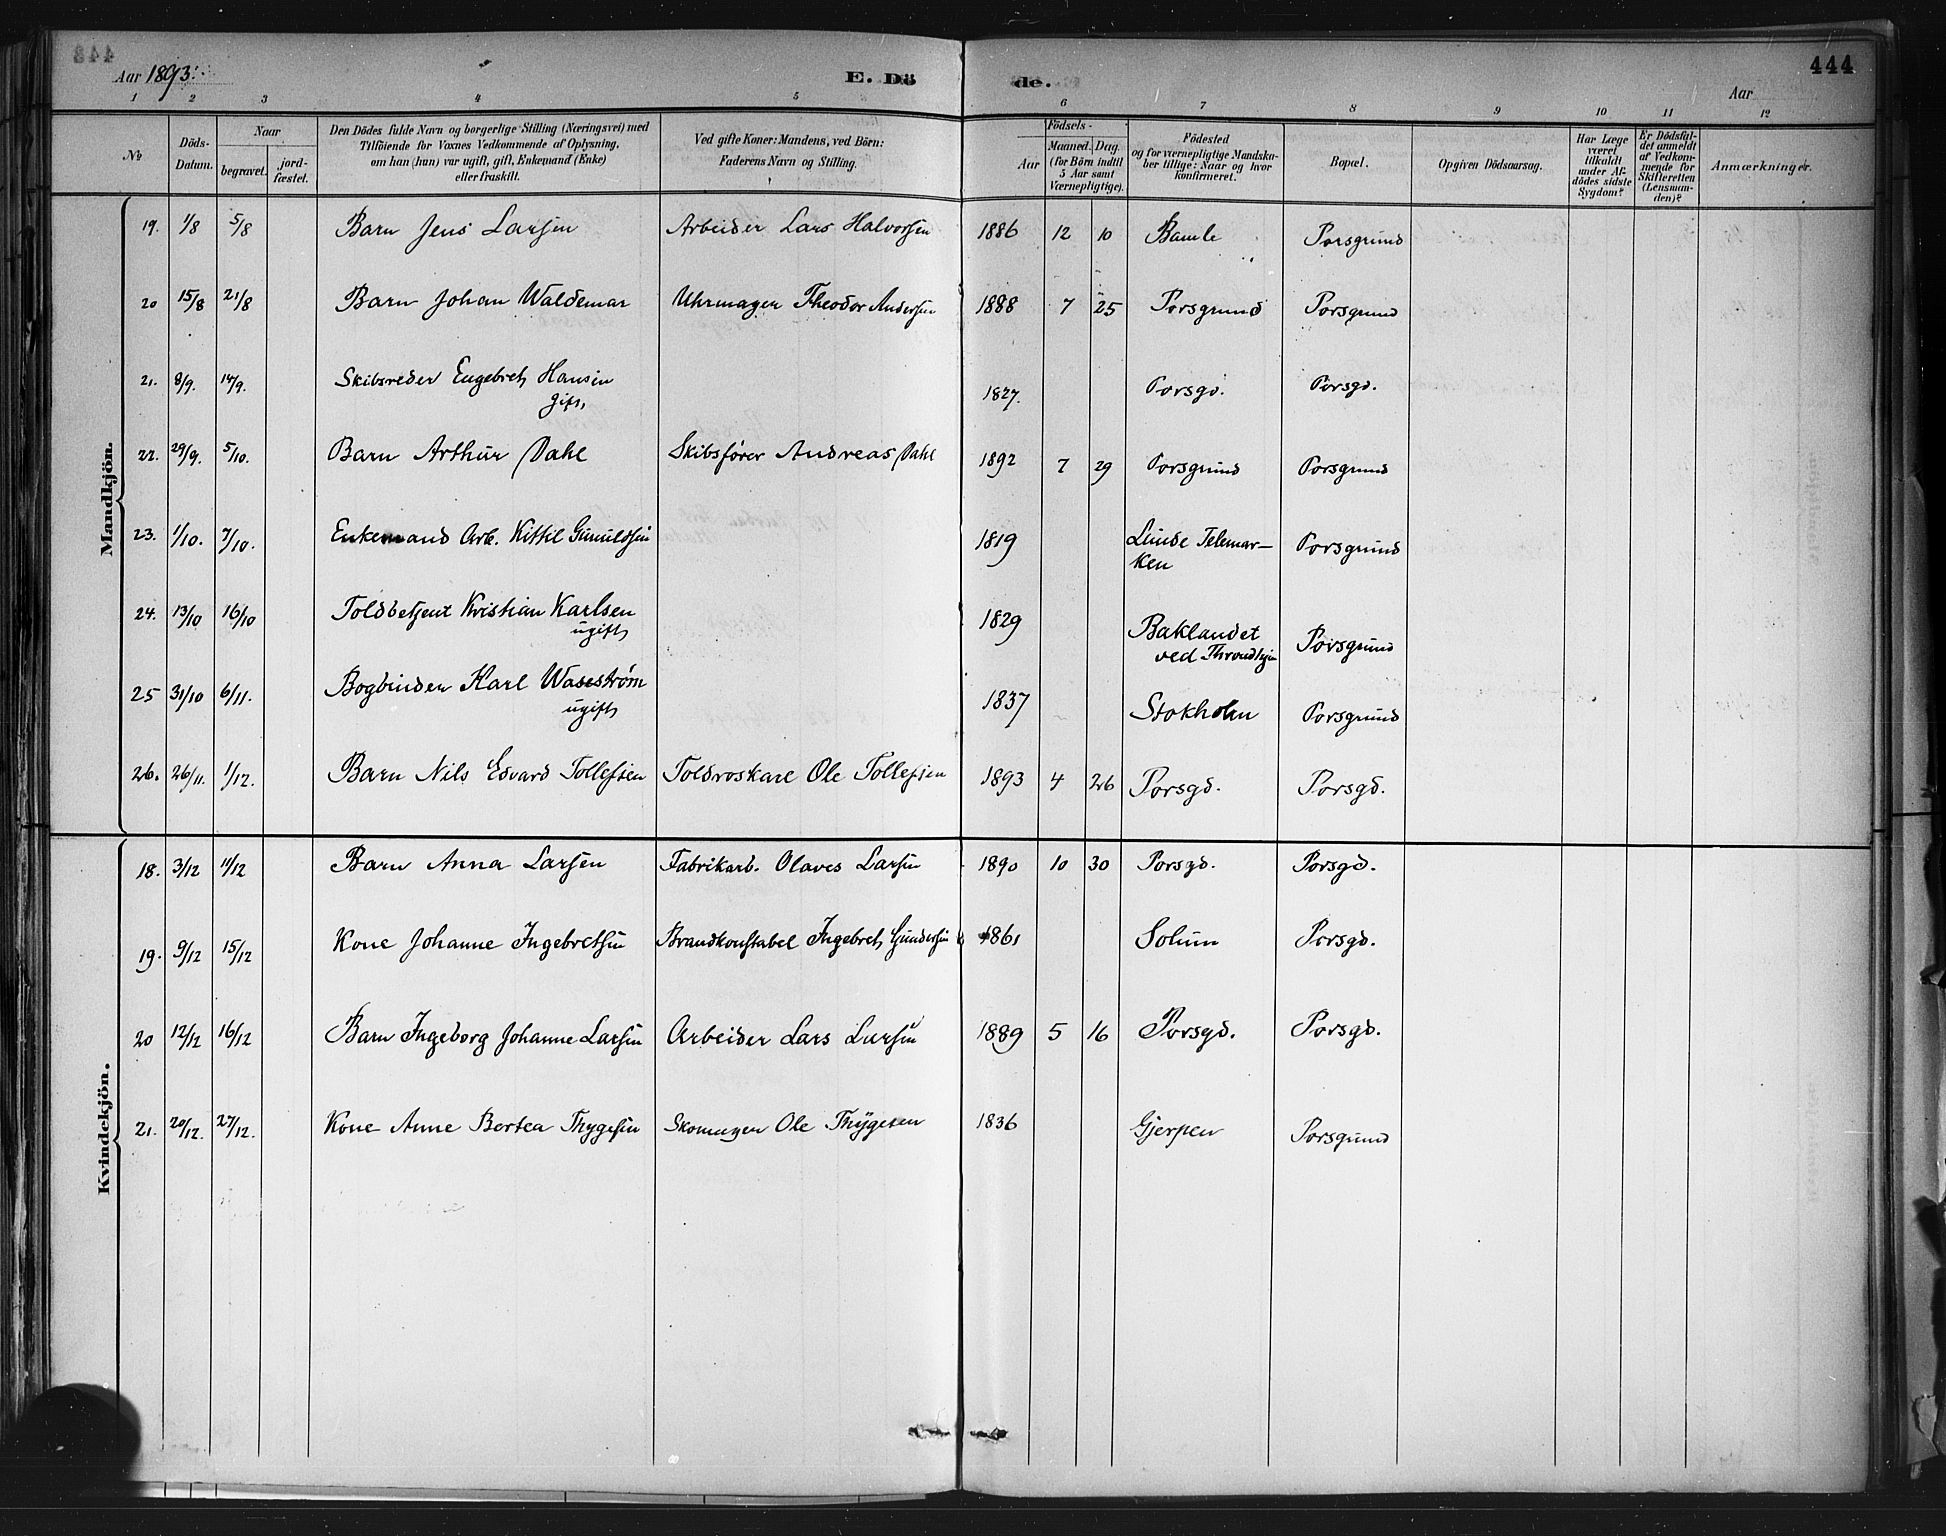 Aar 1893.
E. Dö de.
444
Aar
1 2 3 4 5 6 7 8 9 10 11 12
No
Döds-Datum.
Naar
begravet.
jord-fæstet.
Den Dödes fulde Navn og borgerlige Stilling (Næringsvei) med
Tilföiende for Voxnes Vedkommende af Oplysning,
om han (hun) var ugift, gift, Enkemand (Enke)
eller fraskilt.
Ved gifte Koner: Mandens, ved Börn:
Faderens Navn og Stilling.
Födsels-
Aar
Maaned. Dag.
(for Börn indtil
5 Aar samt
Værnepligtige).
Födested
og for værnepligtige Mandska-
ber tillige: Naar og hvor
konfirmeret.
Bopæl.
Opgiven Dödsaarsag.
Har Læge
været
tilkaldt
under Af-
dödes sidste
Sygdom?
Er Dödsfal-
det anmeldt
af Vedkom-
mende for
Skifteretten
(Lensman-
den)?
Anmærkninger.
Mandkjön.
19. 1/8 5/8 Barn Jens Larsen Arbeider Lars Halvorsen 1886 12 10 Bamle Porsgrund
20 15/8 21/8 Barn Johan Waldemar Uhrmager Theodor Andersen 1888 7 25 Porsgrund Porsgrund
21. 8/9. 14/9. Skibsreder Engebret Hansen 1827. Porsgd. Porsgd.
gift,
22. 29/9. 5/10. Barn Arthur Dahl Skibsfører Andreas Dahl 1892 7 29 Porsgrund Porsgrund
23. 1/10. 7/10. Enkemand Arb. Kittil Gunuldsen 1819 Lunde Telemar-
ken Porsgrund
24. 13/10 16/10 Toldbetjent Kristian Karlsen 1829 Baklandet
ugift ved Throndhjem Porsgrund
25 31/10 6/11. Bogbinder Karl Wasström 1837 Stokholm Porsgrund
ugift
26. 26/11. 1/12. Barn Nils Edvard Tollefsen Toldroskarl Ole Tollefsen 1893 4 26 Porsgd. Porsgd.
Kvindekjön.
18. 3/12 11/12 Barn Anna Larsen Fabrikarb. Olaves Larsen 1890 10 30 Porsgd. Porsgd.
19. 9/12 15/12 Kone Johanne Ingebretsen Brandkonstabel Ingebret Gundersen 1861 Solum Porsgd.
20 12/12 16/12 Barn Ingeborg Johanne Larsen Arbeider Lars Larsen 1889 5 16 Porsgd. Porsgd.
21. 20/12. 27/12. Kone Anne Bertea Thygesen Skomager Ole Thygesen 1836 Gjerpen Porsgrund